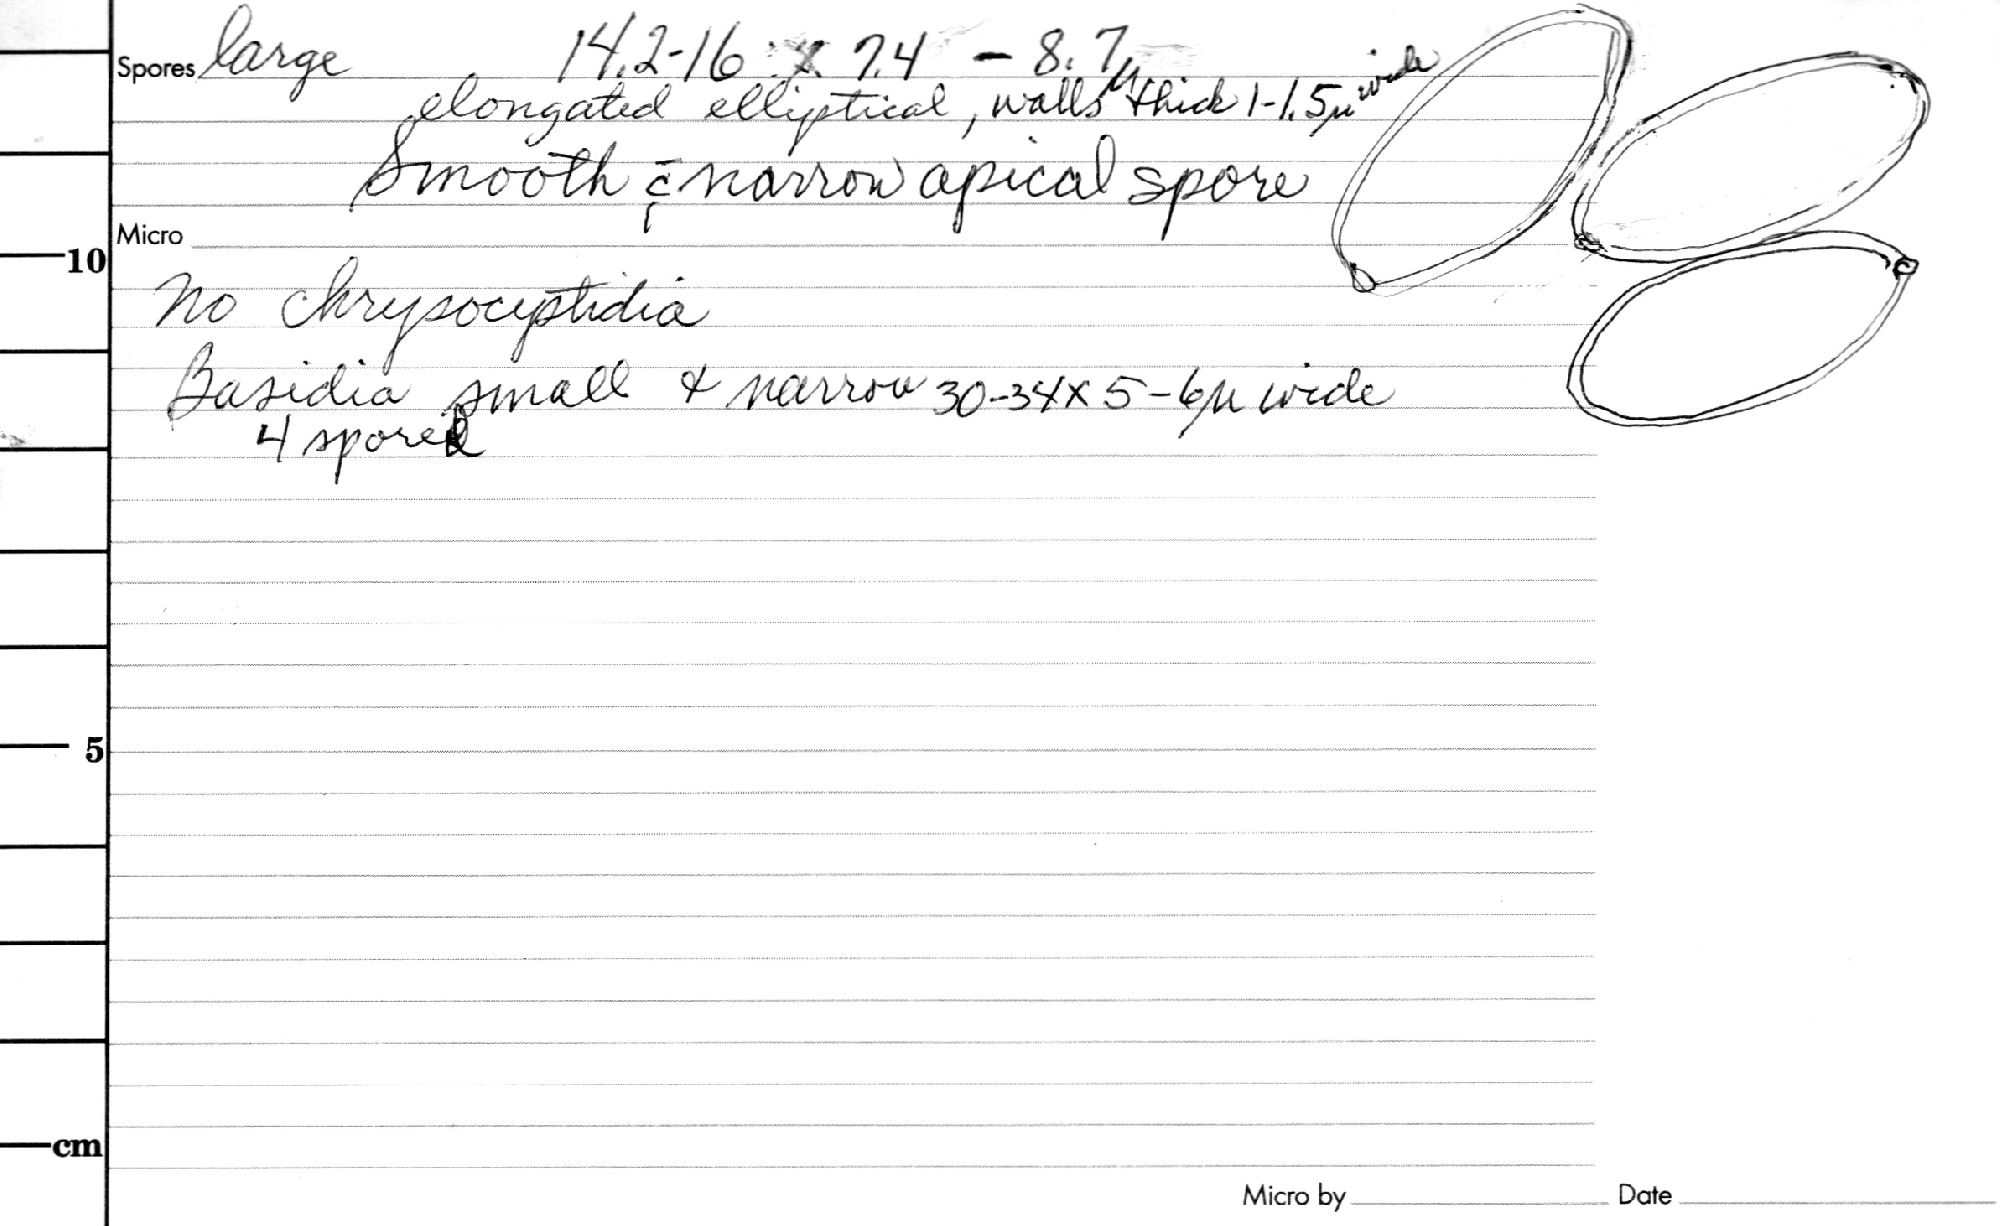 Spores large 14.2-16 x 7.4 - 8.7μ
elongated elliptical, walls thick 1-1.5μ wide
Smooth c̄ narrow apical spore
Micro
10
No chrysocyptidia
Basidia small & narrow 30-34x 5-6μ wide
4 spored
5
cm
Micro by Date